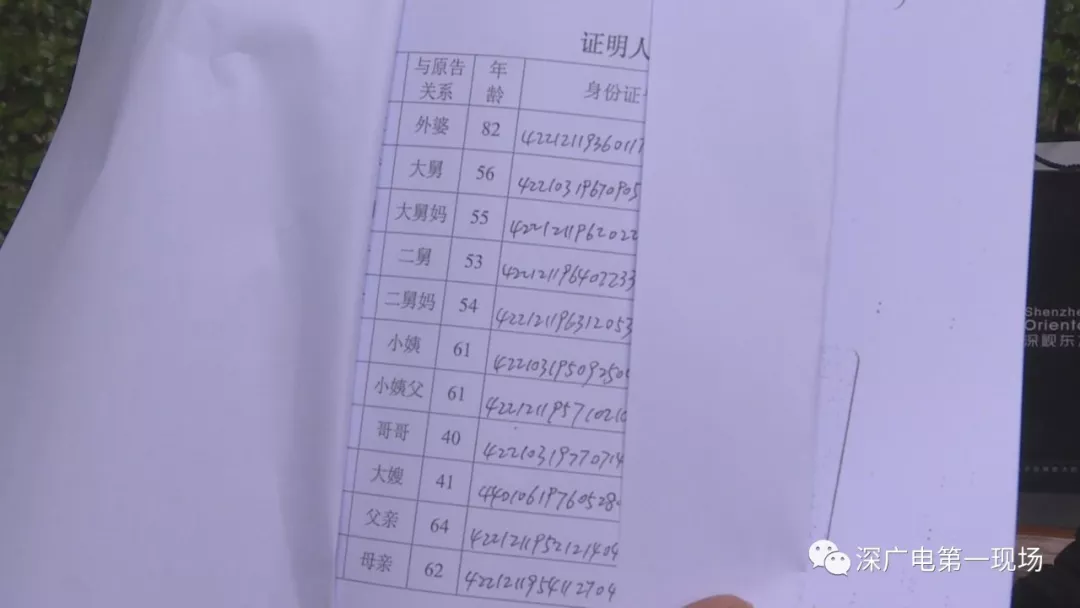 证明人
与原告关系 年龄 身份证
外婆 82 42212119360117
大舅 56 42210319670905
大舅妈 55 4221211962022
二舅 53 422121196402233
二舅妈 54 422121196312053
小姨 61 42210319509250
小姨父 61 422121195710210
哥哥 40 42210319770714
大嫂 41 44010619760528
父亲 64 4221211952121404
母亲 62 4221211954112704
Shenzhe
Oriente
深视东
深广电第一现场